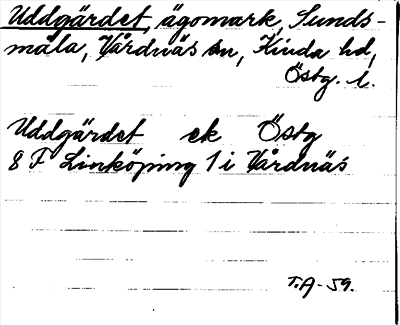 Uddgärdet, ägomark, Sunds-
måla, Vårdnäs sn, Kinda hd,
Östg. l.
Uddgärdet ek Östg
8 F Linköping 1 i Vårdnäs
T.A-59.